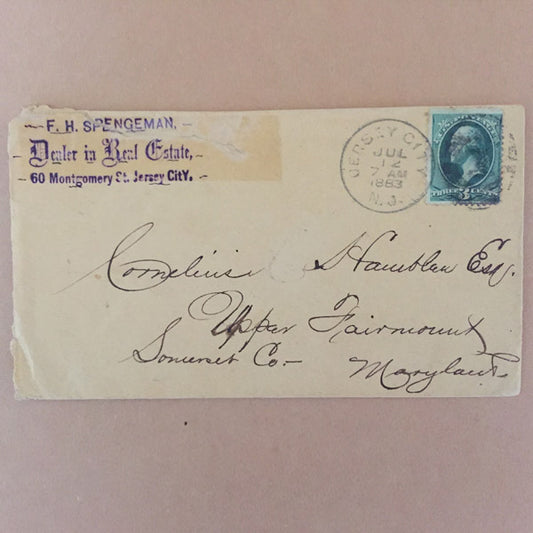 F. H. SPENGEMAN,
Dealer in Real Estate,
60 Montgomery St. Jersey CitY.
JERSEY CITY
JUL
12
7 AM
1883
N.J.
THREE 3 CENTS
Cornelius Hamblen Esq.
Upper Fairmount
Somerset Co—
Maryland